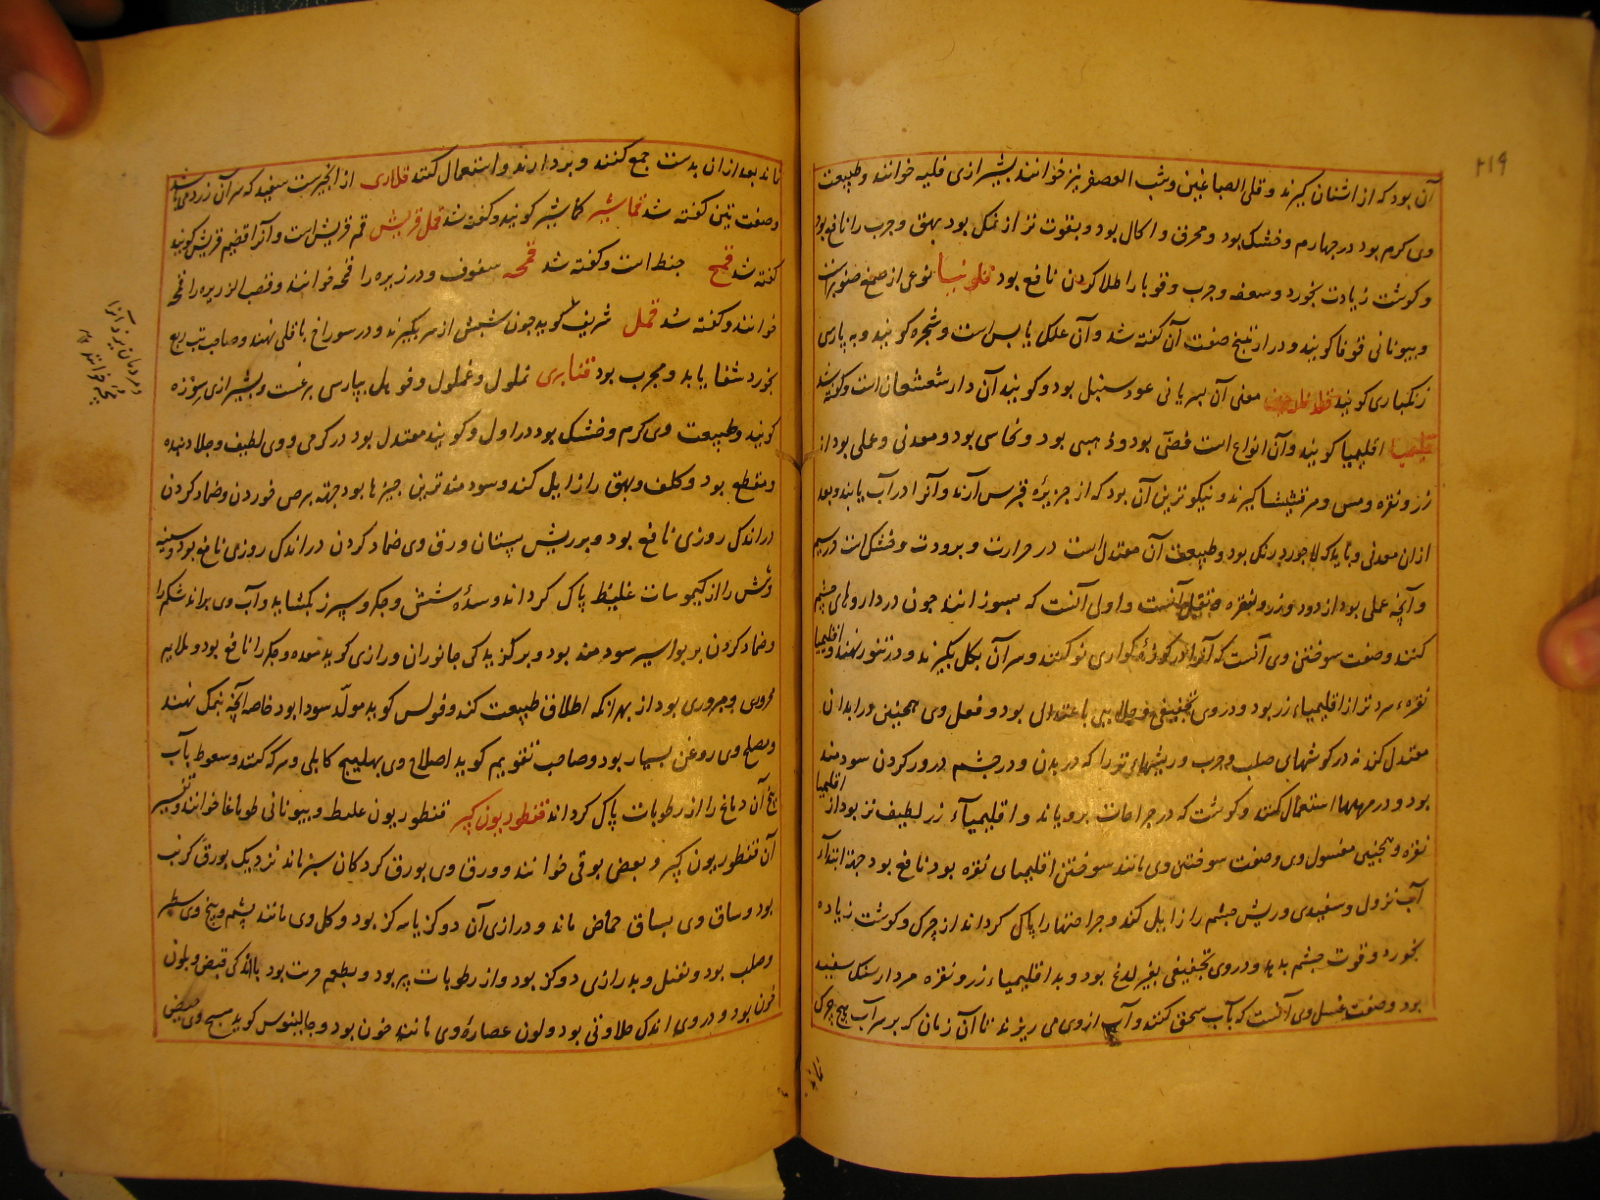 ۲۱۹
آن بود که از اشنان گیرند و قلی الصباغین و شب العصفر نیز خوانند بشیرازی قلیه خوانند و طبیعت
وی گرم بود در چهارم و خشک بود و محرق و اکال بود و بقوت تر از نمک بود بهق و جرب را نافع بود
و گوشت زیادت بخورد و سعفه و جرب و قوبا را طلا کردن نافع بود قلونیا نوعی از صمغ صنوبر است
و بیونانی قوفا گویند و در راتینج صفت آن گفته شد و آن علک یابس است و شجره گویند و به پارسی
زنکباری گویند معنی آن بسریانی عود سنبل بود و گویند آن دار شعشعان است و گفته شد
قلیمیا اقلیمیا گویند و آن انواع است فضی بود و ذهبی بود و نحاسی بود و معدنی و عملی بود از
زر و نقره و مس و مرقشیشا گیرند و نیکوترین آن بود که از جزیره قبرس آرند و آنرا در آب یابند و بعد
از آن معدنی و باید که لاجورد رنگ بود و طبیعت آن معتدل است در حرارت و برودت و خشک است در سیم
و آنچه عملی بود از دود و زر و نقره و اولی آنست که بسوزانند چون در داروهای چشم
کنند و صفت سوختن وی آنست که آنرا در کوزه گواری نو کنند و سر آن بگل بگیرند و در تنور نهند و اقلیمیا
نقره سردتر از اقلیمیاء زر بود و در وی تجفیفی و جلایی باعتدال بود و فعل وی همچنین در ابدان
معتدل کند نه در گوشهای صلب و جرب و ریشهای تر را که در بدن و در چشم درور کردن سودمند
بود و در مرهمها استعمال کنند و گوشت که در جراحات برویاند و اقلیمیاء زر لطیف تر بود از اقلیمیا
نقره و همچنین مغسول وی و صفت سوختن وی مانند سوختن اقلیمیای نقره بود نافع بود جهة ابتدآء
آب نزول و سفیدی و ریش چشم را زایل کند و جراحتها را پاک گرداند از چرک و گوشت زیاده
بخورد و قوت چشم بدهد و در وی تجفیفی بغیر لدغ بود و بدل اقلیمیاء زر و نقره مردار سنگ سفید
بود و صفت غسل وی آنست که بآب سحق کنند و آب از وی می ریزند تا آن زمان که بر سر آب هیچ چرک
نماند
نماند بعد از آن بدست جمع کنند و بردارند و استعمال کنند قلاری از انجیرست سفید که سر آن زردی باشد
و صفت تین گفته شد قماشیر کماشیر گویند و گفته شد قمل قریش قم قریش است و آنرا قضیم قریش گویند
گفته شد قمح حنطه است و گفته شد قمحه سفوف و در زیره را قمحه خوانند و قصب الزریره را قمحه
خوانند و گفته شد قمل شریف گوید چون شپش از سر بگیرند و در سوراخ باقلی نهند و صاحب تب ربع
بخورد شفا یابد و مجرب بود قنابری نملول و غملول و قوهل بپارسی برغست و بشیرازی سوزه
گویند و طبیعت وی گرم و خشک بود در اول و گویند معتدل بود در گرمی و وی لطیف و جلا دهنده
و مقطع بود و کلف و بهق را زایل کند و سودمندترین چیزها بود جهة برص خوردن و ضماد کردن
در اندک روزی نافع بود و بر ریش پستان ورق وی ضماد کردن در اندک روزی نافع بود و سینه
و شش را از کیموسات غلیظ پاک گرداند و سده شش و جگر و سپرز بگشاید و آب وی براند شکم را
و ضماد کردن بر بواسیر سودمند بود و بر گزیدگی جانوران و رازی گوید معده و جگر را نافع بود و ملایم
محروری و مبرودی بود از بهر آنکه اطلاق طبیعت کند و فولس گوید مولّد سودا بود خاصه آنچه بنمک نهند
و مصلح وی روغن بسیار بود و صاحب تقویم گوید اصلاح وی بهلیلج کابلی و سرکه کنند و سعوط بآب
بیخ آن دماغ را از رطوبات پاک گرداند قنطوریون کبیر قنطوریون غلیظ و بیونانی طوماغا خوانند و تفسیر
آن قنطوریون کبیر و بعضی بوقی خوانند و ورق وی بورق گردکان سبز ماند نزدیک بورق کرنب
بود و ساق وی بساق حماض ماند و درازی آن دو گز یا سه گز بود و گل وی مانند پشم و بیخ وی سطبر
و صلب بود و ثقیل و بدرازی دو گز بود و از رطوبات پر بود و بطعم حرّیف بود با اندکی قبض و بلون
خون بود و در وی اندک حلاوتی بود و لون عصاره وی مانند خون بود و جالینوس گوید